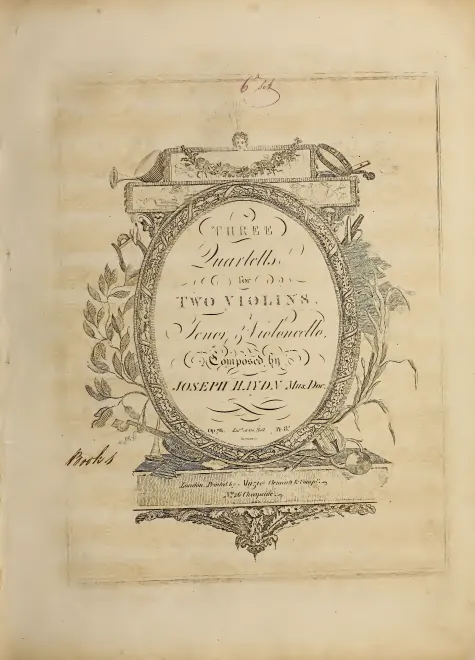 6th Set
THREE
Quartetts,
for
TWO VIOLINS,
Tenor, & Violoncello,
Composed by
JOSEPH HAYDN Mus. Doc.
Op. 76.
London, Printed by Muzio Clementi & Compy.
No. 26 Cheapside.